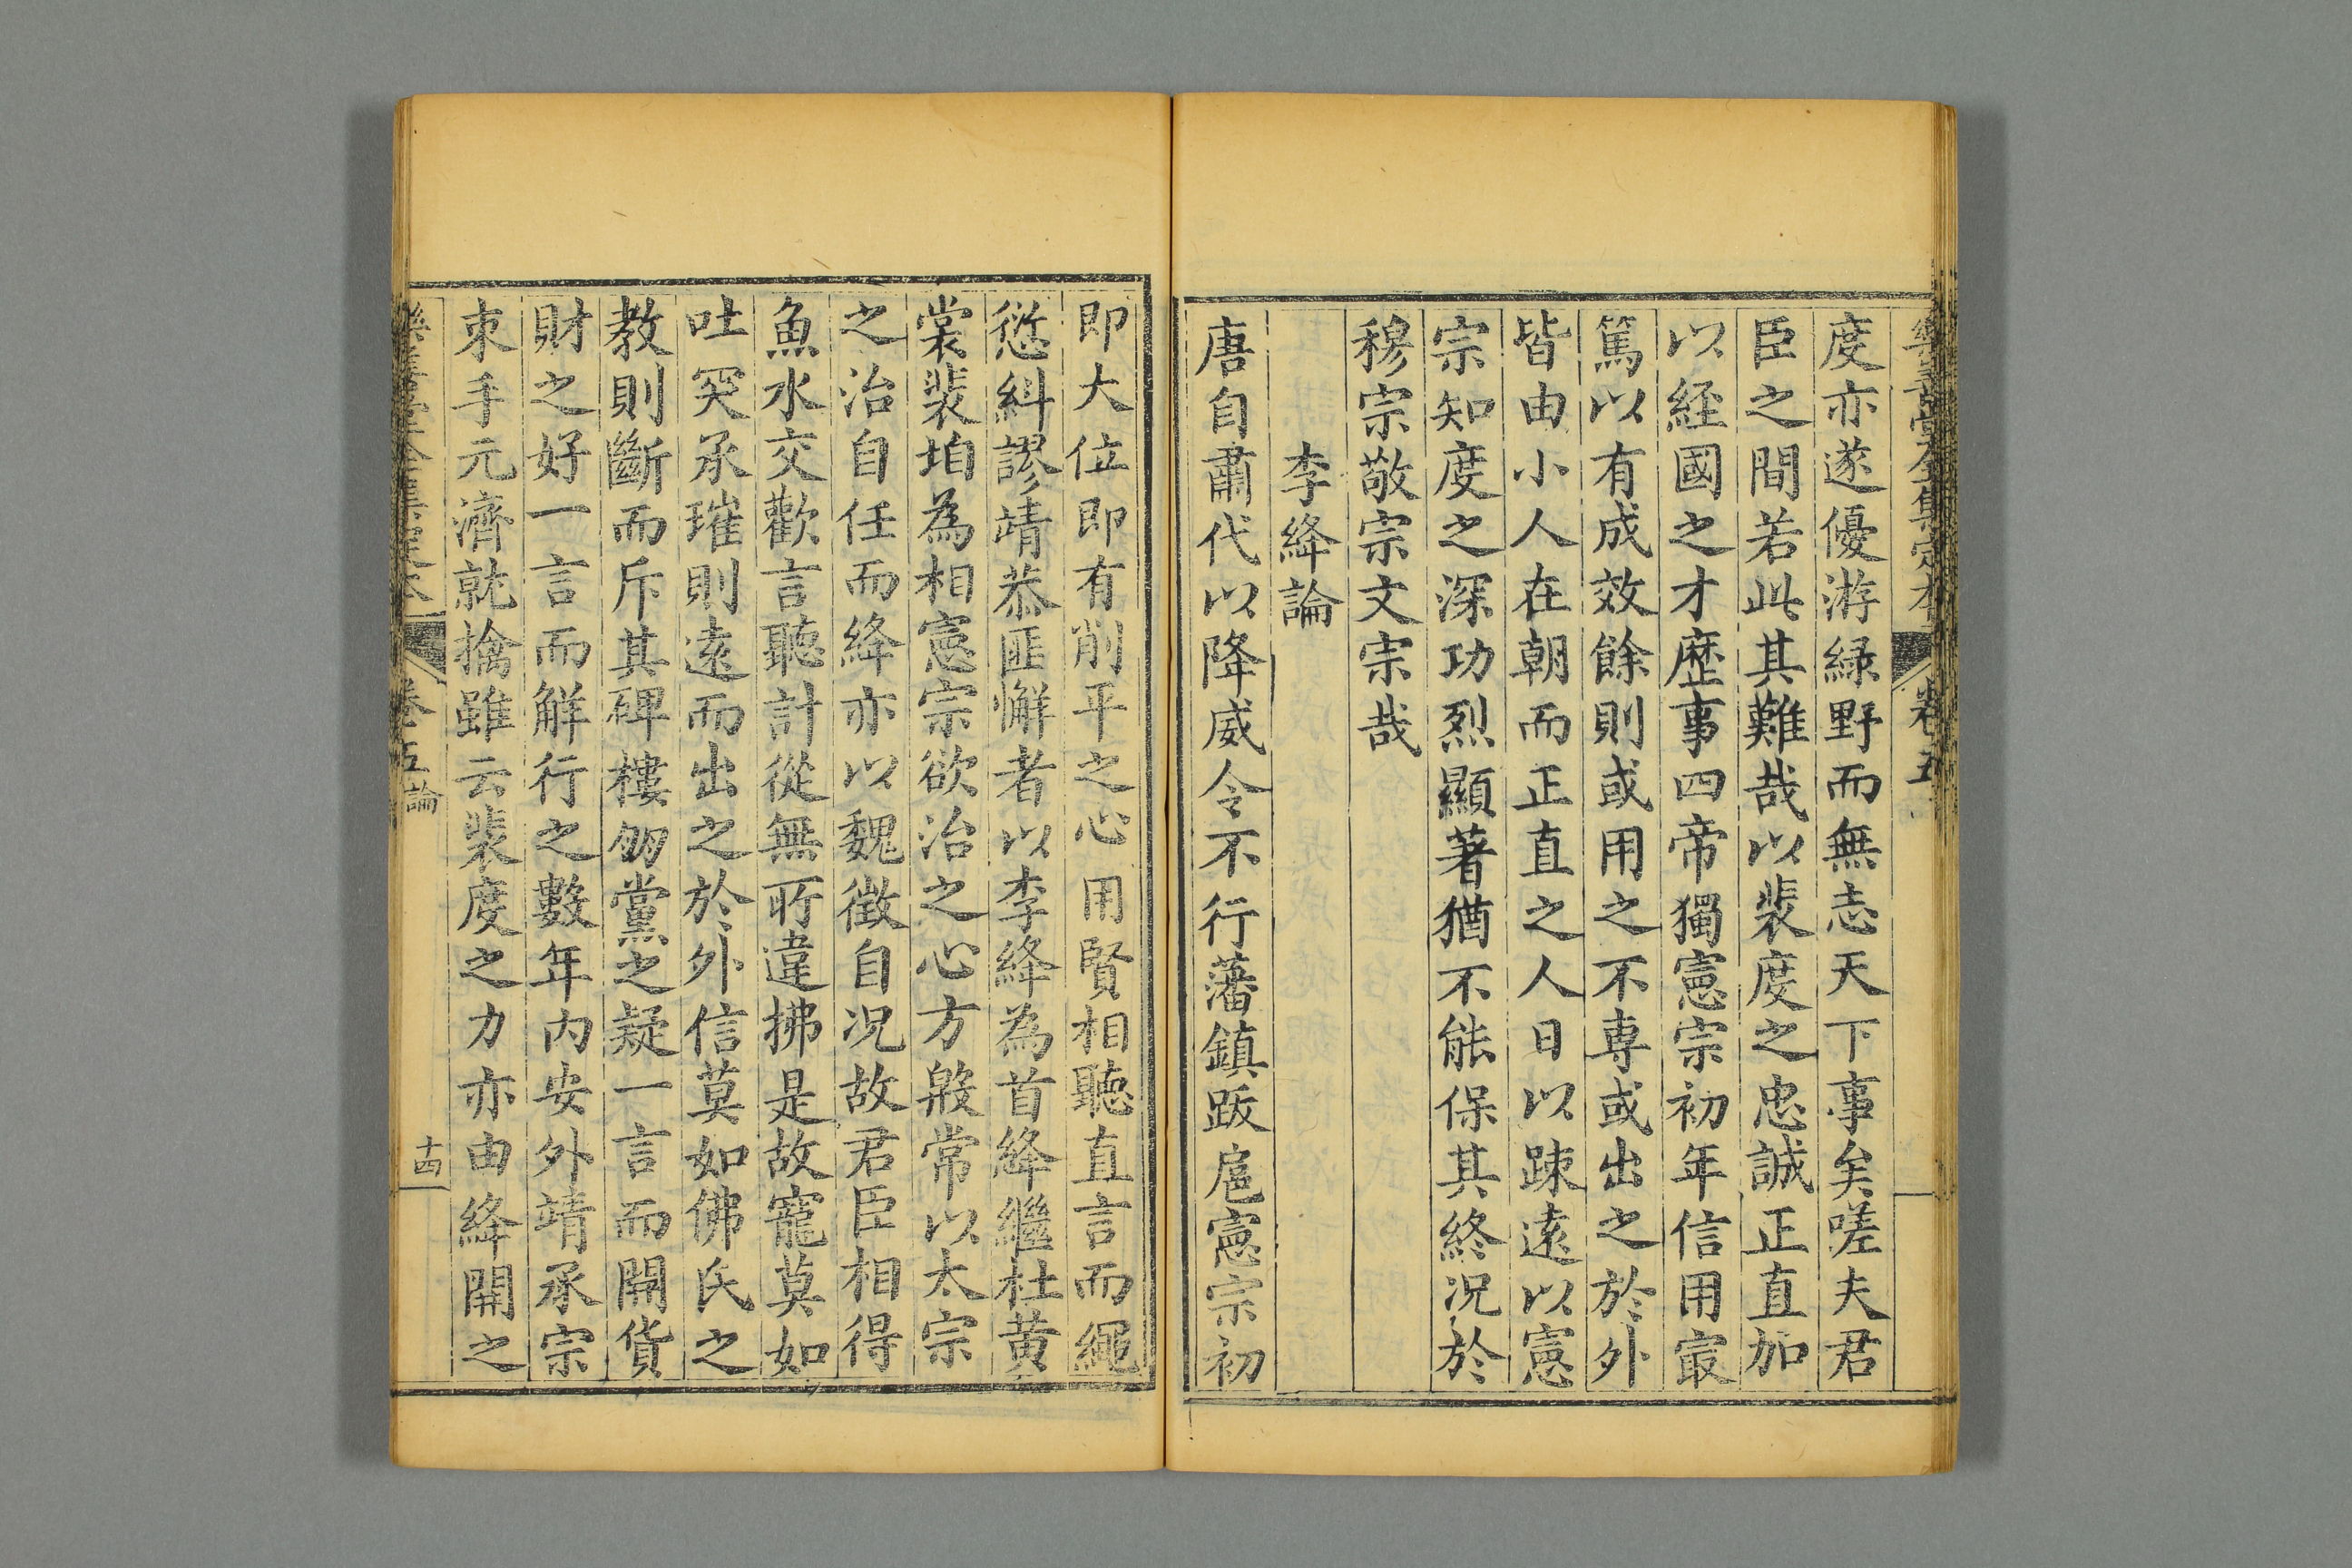 樂善堂全集定本
卷五
度亦遂優游緑野而無志天下事矣嗟夫君
臣之間若此其難哉以裴度之忠誠正直加
以經國之才歴事四帝獨憲宗初年信用㝡
篤以有成效餘則或用之不専或出之於外
皆由小人在朝而正直之人日以踈逺以憲
宗知度之深功烈顯著猶不能保其終况於
穆宗敬宗文宗哉
李絳論
唐自肅代以降威令不行藩鎮跋扈憲宗初
即大位即有削平之心用賢相聽直言而繩
愆糾謬靖恭匪懈者以李絳為首絳繼杜黄
裳裴垍為相憲宗欲治之心方殷常以太宗
之治自任而絳亦以魏徵自况故君臣相得
魚水交歡言聽計從無所違拂是故寵莫如
吐突承璀則逺而出之於外信莫如佛氏之
教則斷而斥其碑樓朋黨之疑一言而開貨
財之好一言而解行之數年内安外靖承宗
束手元濟就擒雖云裴度之力亦由絳開之
樂善堂全集定本
卷五論
十四